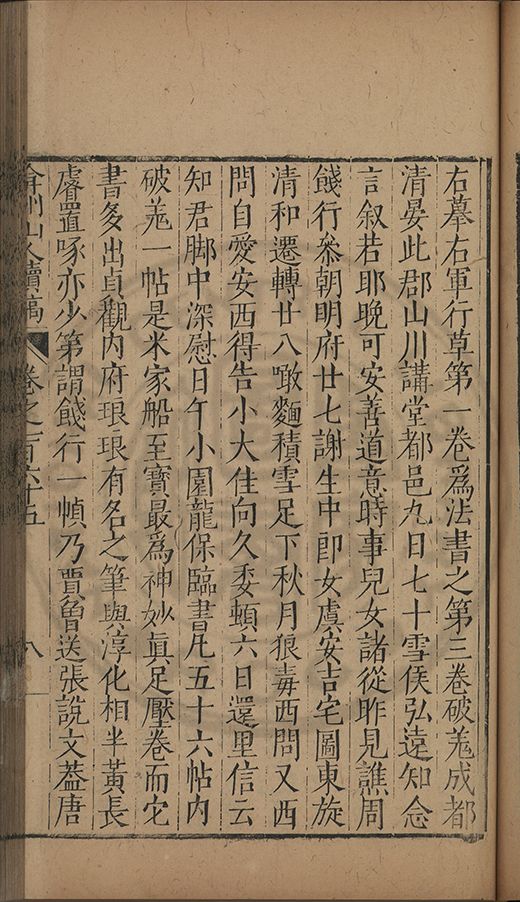 右摹右軍行草第一卷爲法書之第三卷破羗成都
清晏此郡山川講堂都邑九日七十雪侯弘遠知念
言叙若耶晚可安善道意時事兒女諸從昨見譙周
餞行叅朝明府廿七謝生中郎女虞安吉宅圖東旋
清和遷轉廿八噉麵積雪足下秋月狼毒西問又西
問自愛安西得告小大佳向久委頓六日還里信云
知君脚中深慰日午小園龍保臨書凡五十六帖内
破羗一帖是米家船至寳最爲神妙眞足壓卷而它
書多出貞觀内府琅琅有名之筆與淳化相半黃長
睿置啄亦少第謂餞行一幀乃賈曾送張說文葢唐
弇州山人續稿 卷之一百六十五 八